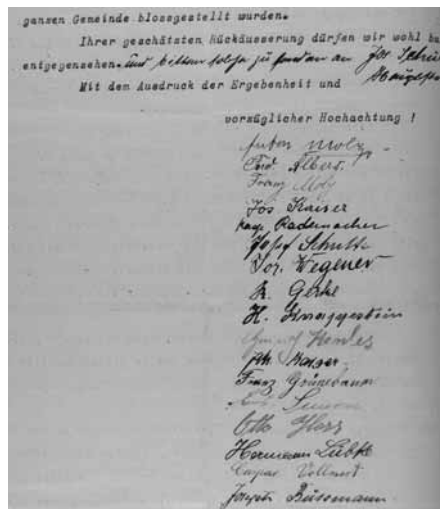 ganzen Gemeinde blossgestellt wurden.
Ihrer geschätzten Rückäusserung dürfen wir wohl
entgegensehen. und bitten solche zu senden an Jos
Mit dem Ausdruck der Ergebenheit und
vorzüglicher Hochachtung !
Anton Moly
Ferd. Albers.
Franz Moly
Jos Kaiser
Rademacher
Josef Schulte
Jos. Wegener
R. Gerke
H. Knaggestein
Henles
Kaiser
Franz Grünebaum
Simon
Otto Herz
Hermann Lübke
Caspar Vollmert
Joseph Büssmann